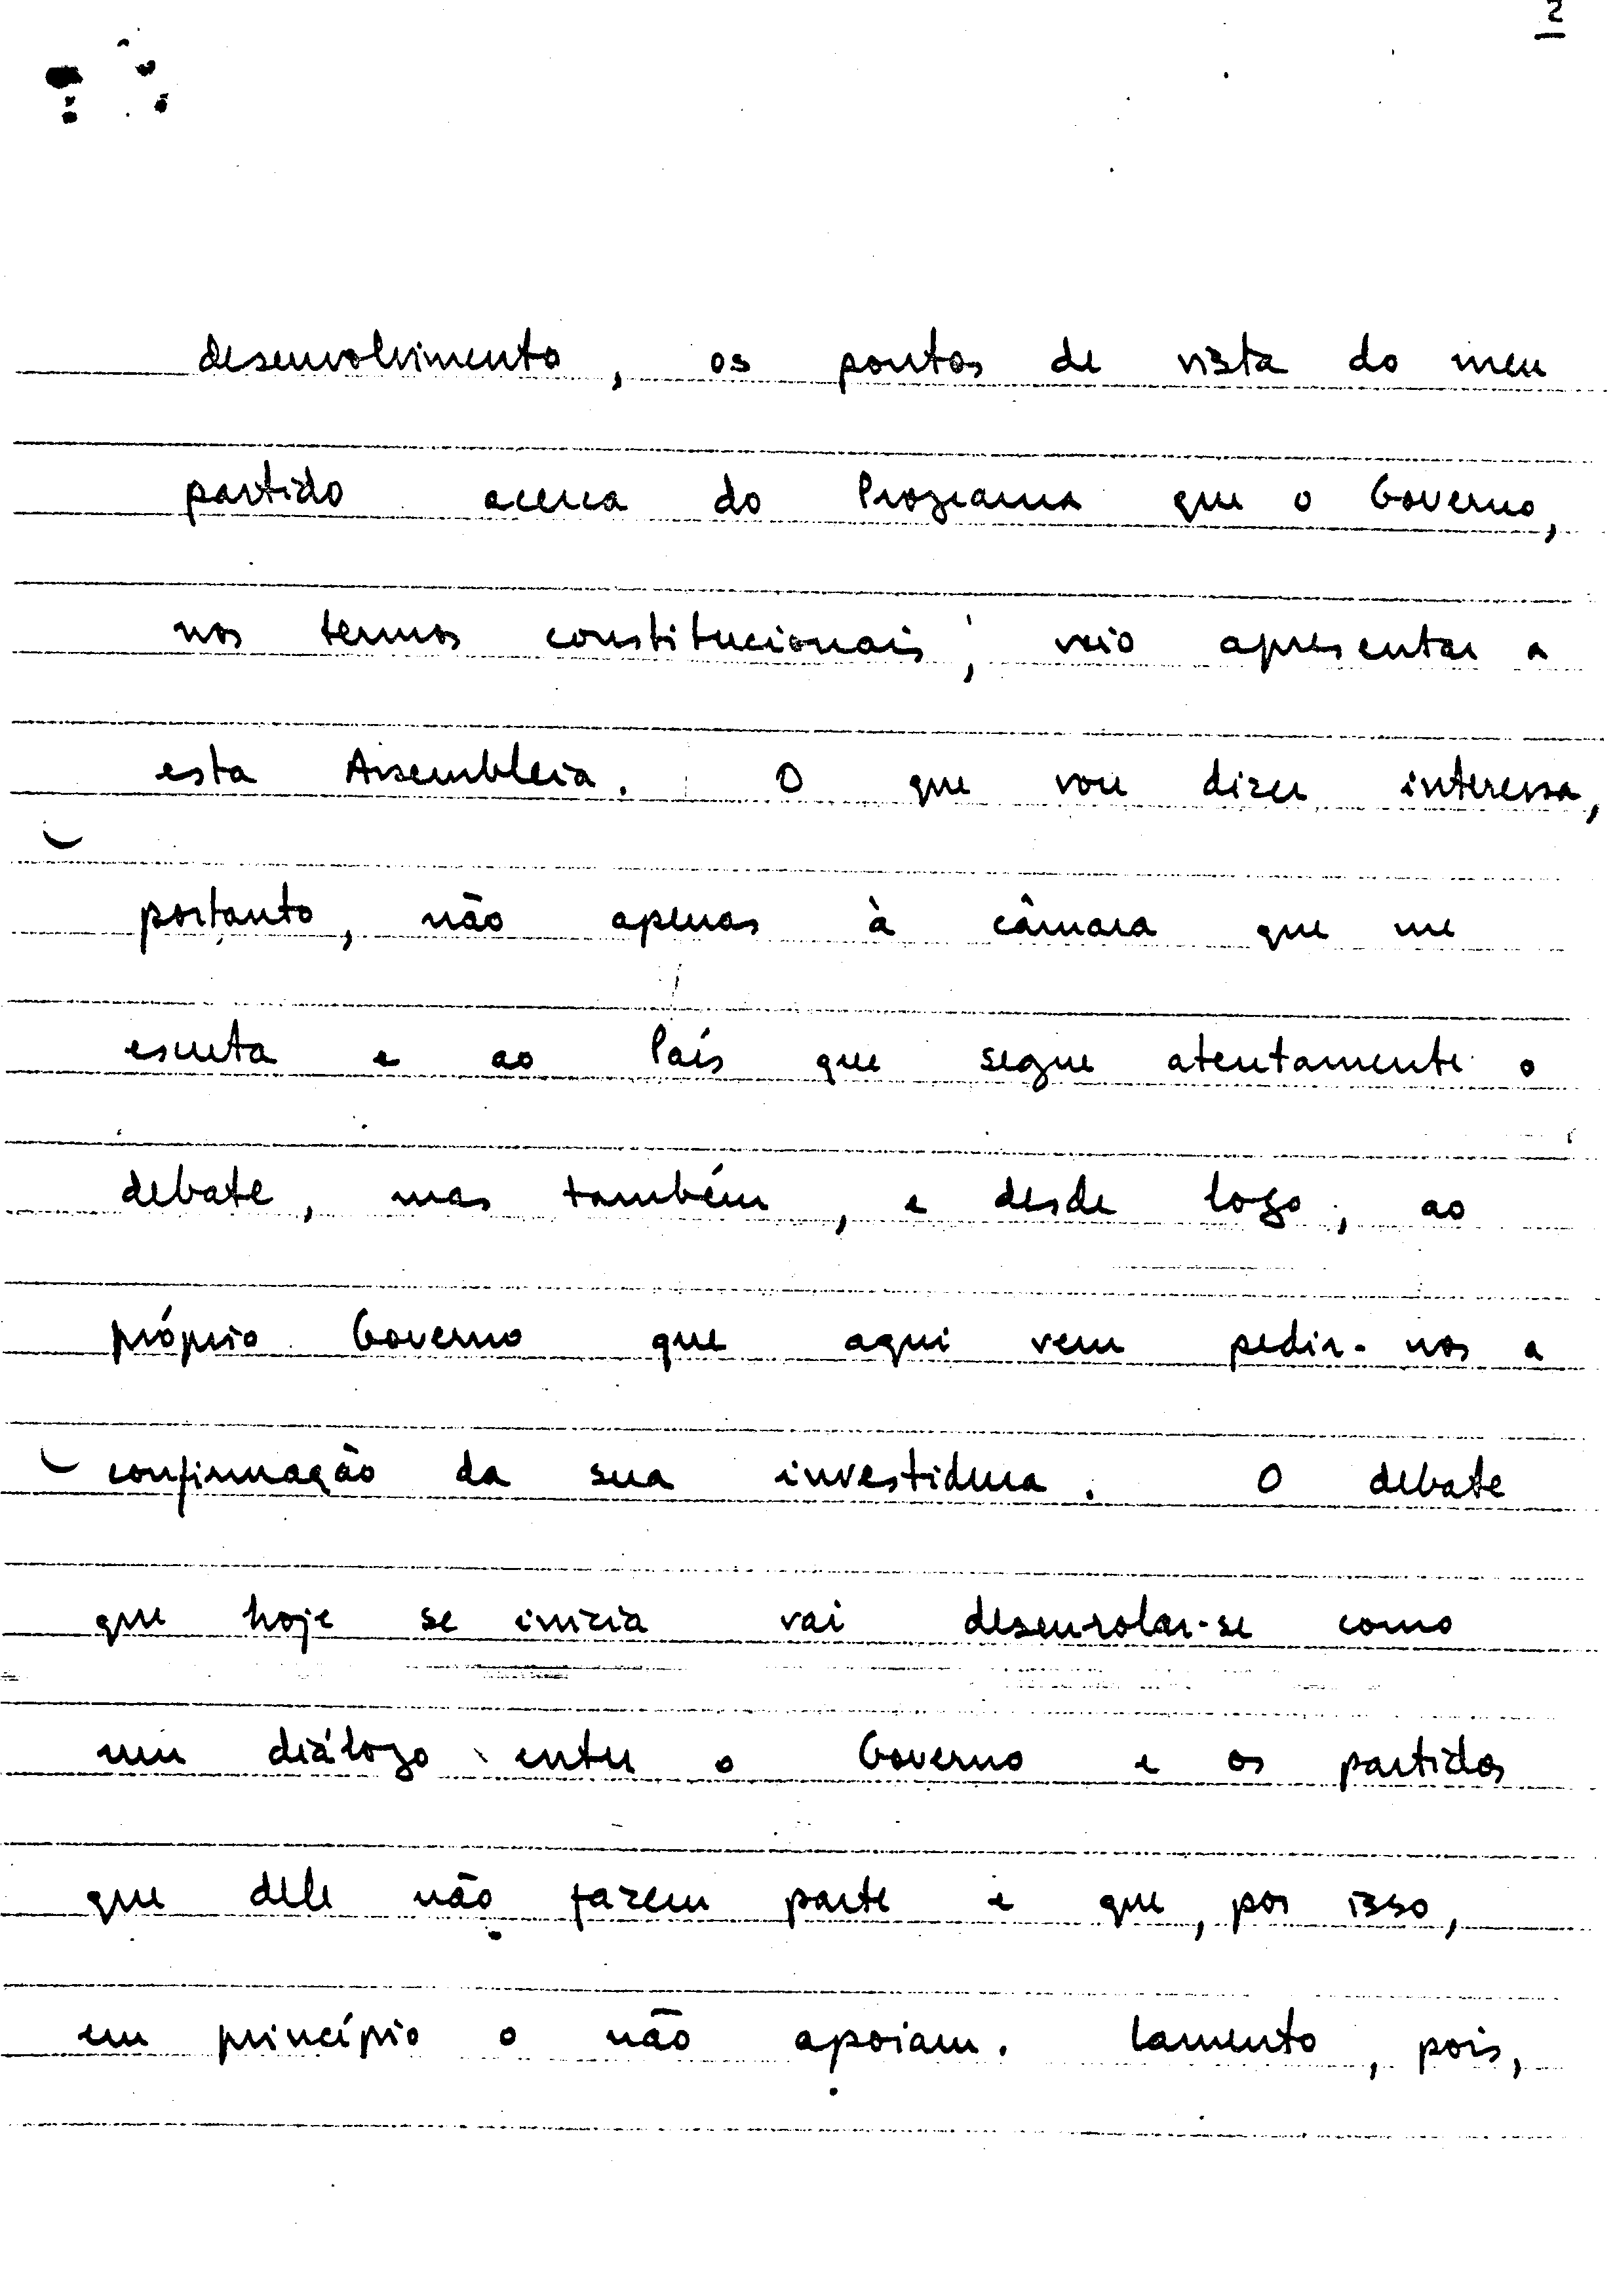 2
desenvolvimento, os pontos de vista do meu
partido acerca do Programa que o Governo,
nos termos constitucionais, veio apresentar a
esta Assembleia. O que vou dizer interessa,
portanto, não apenas à câmara que me
escuta e ao País que segue atentamente o
debate, mas também, e desde logo, ao
próprio Governo que aqui vem pedir-nos a
confirmação da sua investidura. O debate
que hoje se inicia vai desenrolar-se como
um diálogo entre o Governo e os partidos
que dele não fazem parte e que, por isso,
em princípio o não apoiam. Lamento, pois,